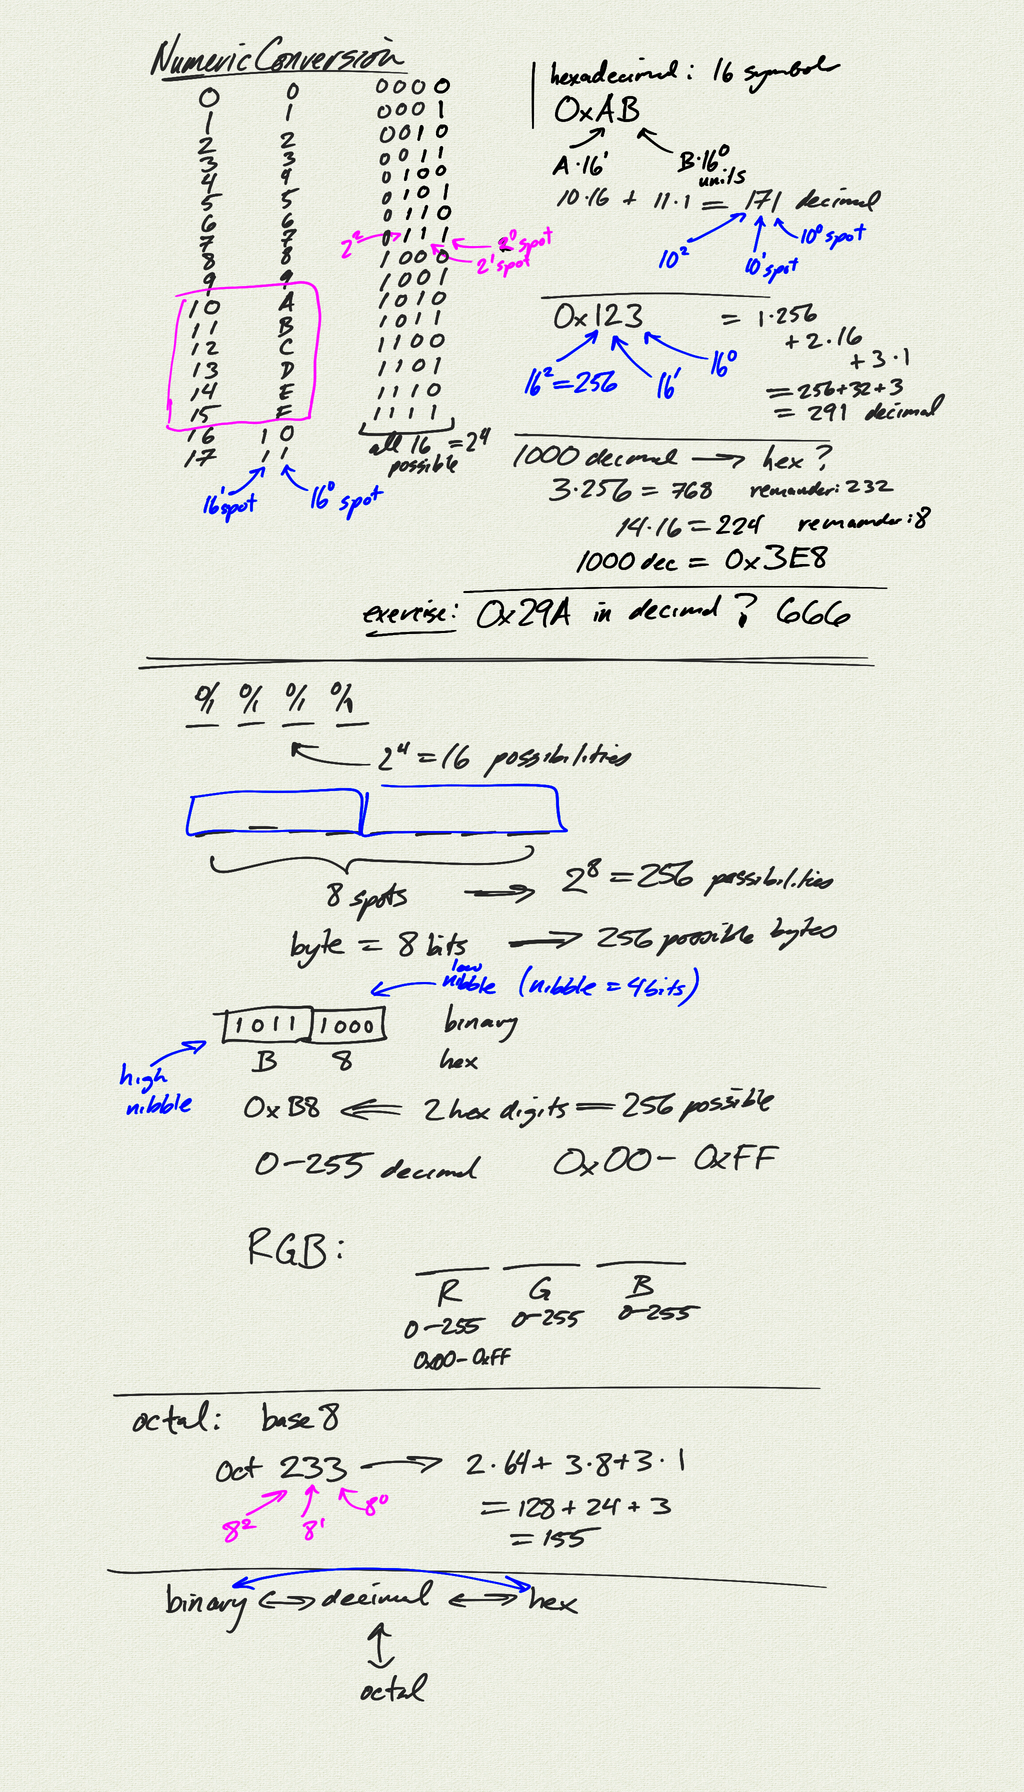 Numeric Conversion
0 0 0000
1 1 0001
2 2 0010
3 3 0011
4 4 0100
5 5 0101
6 6 0110
7 7 0111
8 8 1000
9 9 1001
10 A 1010
11 B 1011
12 C 1100
13 D 1101
14 E 1110
15 F 1111
16 10
17 11
2² 2⁰ spot
2¹ spot
all 16 = 2⁴
possible
16¹ spot 16⁰ spot
hexadecimal: 16 symbols
0xAB
A·16¹ B·16⁰
units
10·16 + 11·1 = 171 decimal
10² 10¹ spot 10⁰ spot
0x123 = 1·256
+ 2·16
+ 3·1
16² = 256 16¹ 16⁰
= 256+32+3
= 291 decimal
1000 decimal → hex?
3·256 = 768 remainder: 232
14·16 = 224 remainder: 8
1000 dec = 0x3E8
exercise: 0x29A in decimal? 666
0/1 0/1 0/1 0/1
2⁴ = 16 possibilities
8 spots → 2⁸ = 256 possibilities
byte = 8 bits → 256 possible bytes
low
nibble (nibble = 4 bits)
1011 1000 binary
B 8 hex
high
nibble
0xB8 ⇐ 2 hex digits = 256 possible
0-255 decimal 0x00 - 0xFF
RGB:
R G B
0-255 0-255 0-255
0x00-0xFF
octal: base 8
oct 233 → 2·64 + 3·8 + 3·1
8² 8¹ 8⁰
= 128 + 24 + 3
= 155
binary ↔ decimal ↔ hex
octal